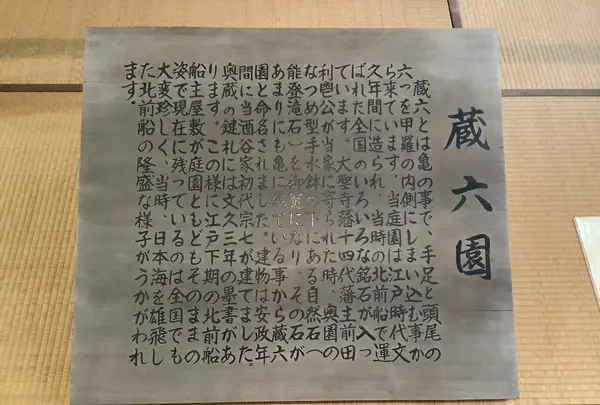 蔵六園
蔵六とは亀の事で、手足と頭尾の
六つを甲羅の内側にしまい込む事か
ら来ています。当庭園は江戸時代文
久年間に造られ、当時の北前船で運
ばれた全国のいろいろな名石が入っ
ています。大聖寺藩十四代藩主前田
利鬯公が当家に寄られた時、奥園の
なつめ型手水鉢の下にある自然石(
能登滝石)を御覧になり、その石が
あまりにも亀に似ている事から蔵六
園と命名されました。建物は安政年
間に当酒谷家初代宗七が建てました。
奥蔵の鍵札には文久三年の墨書があ
ります。この様に江戸下期の北前船
船主屋敷が庭園ともどもそのままの
姿で現在に残っているのは全国でも
大変珍しく、当時、日本海を雄飛し
た北前船の隆盛な様子がうかがわれ
ます。